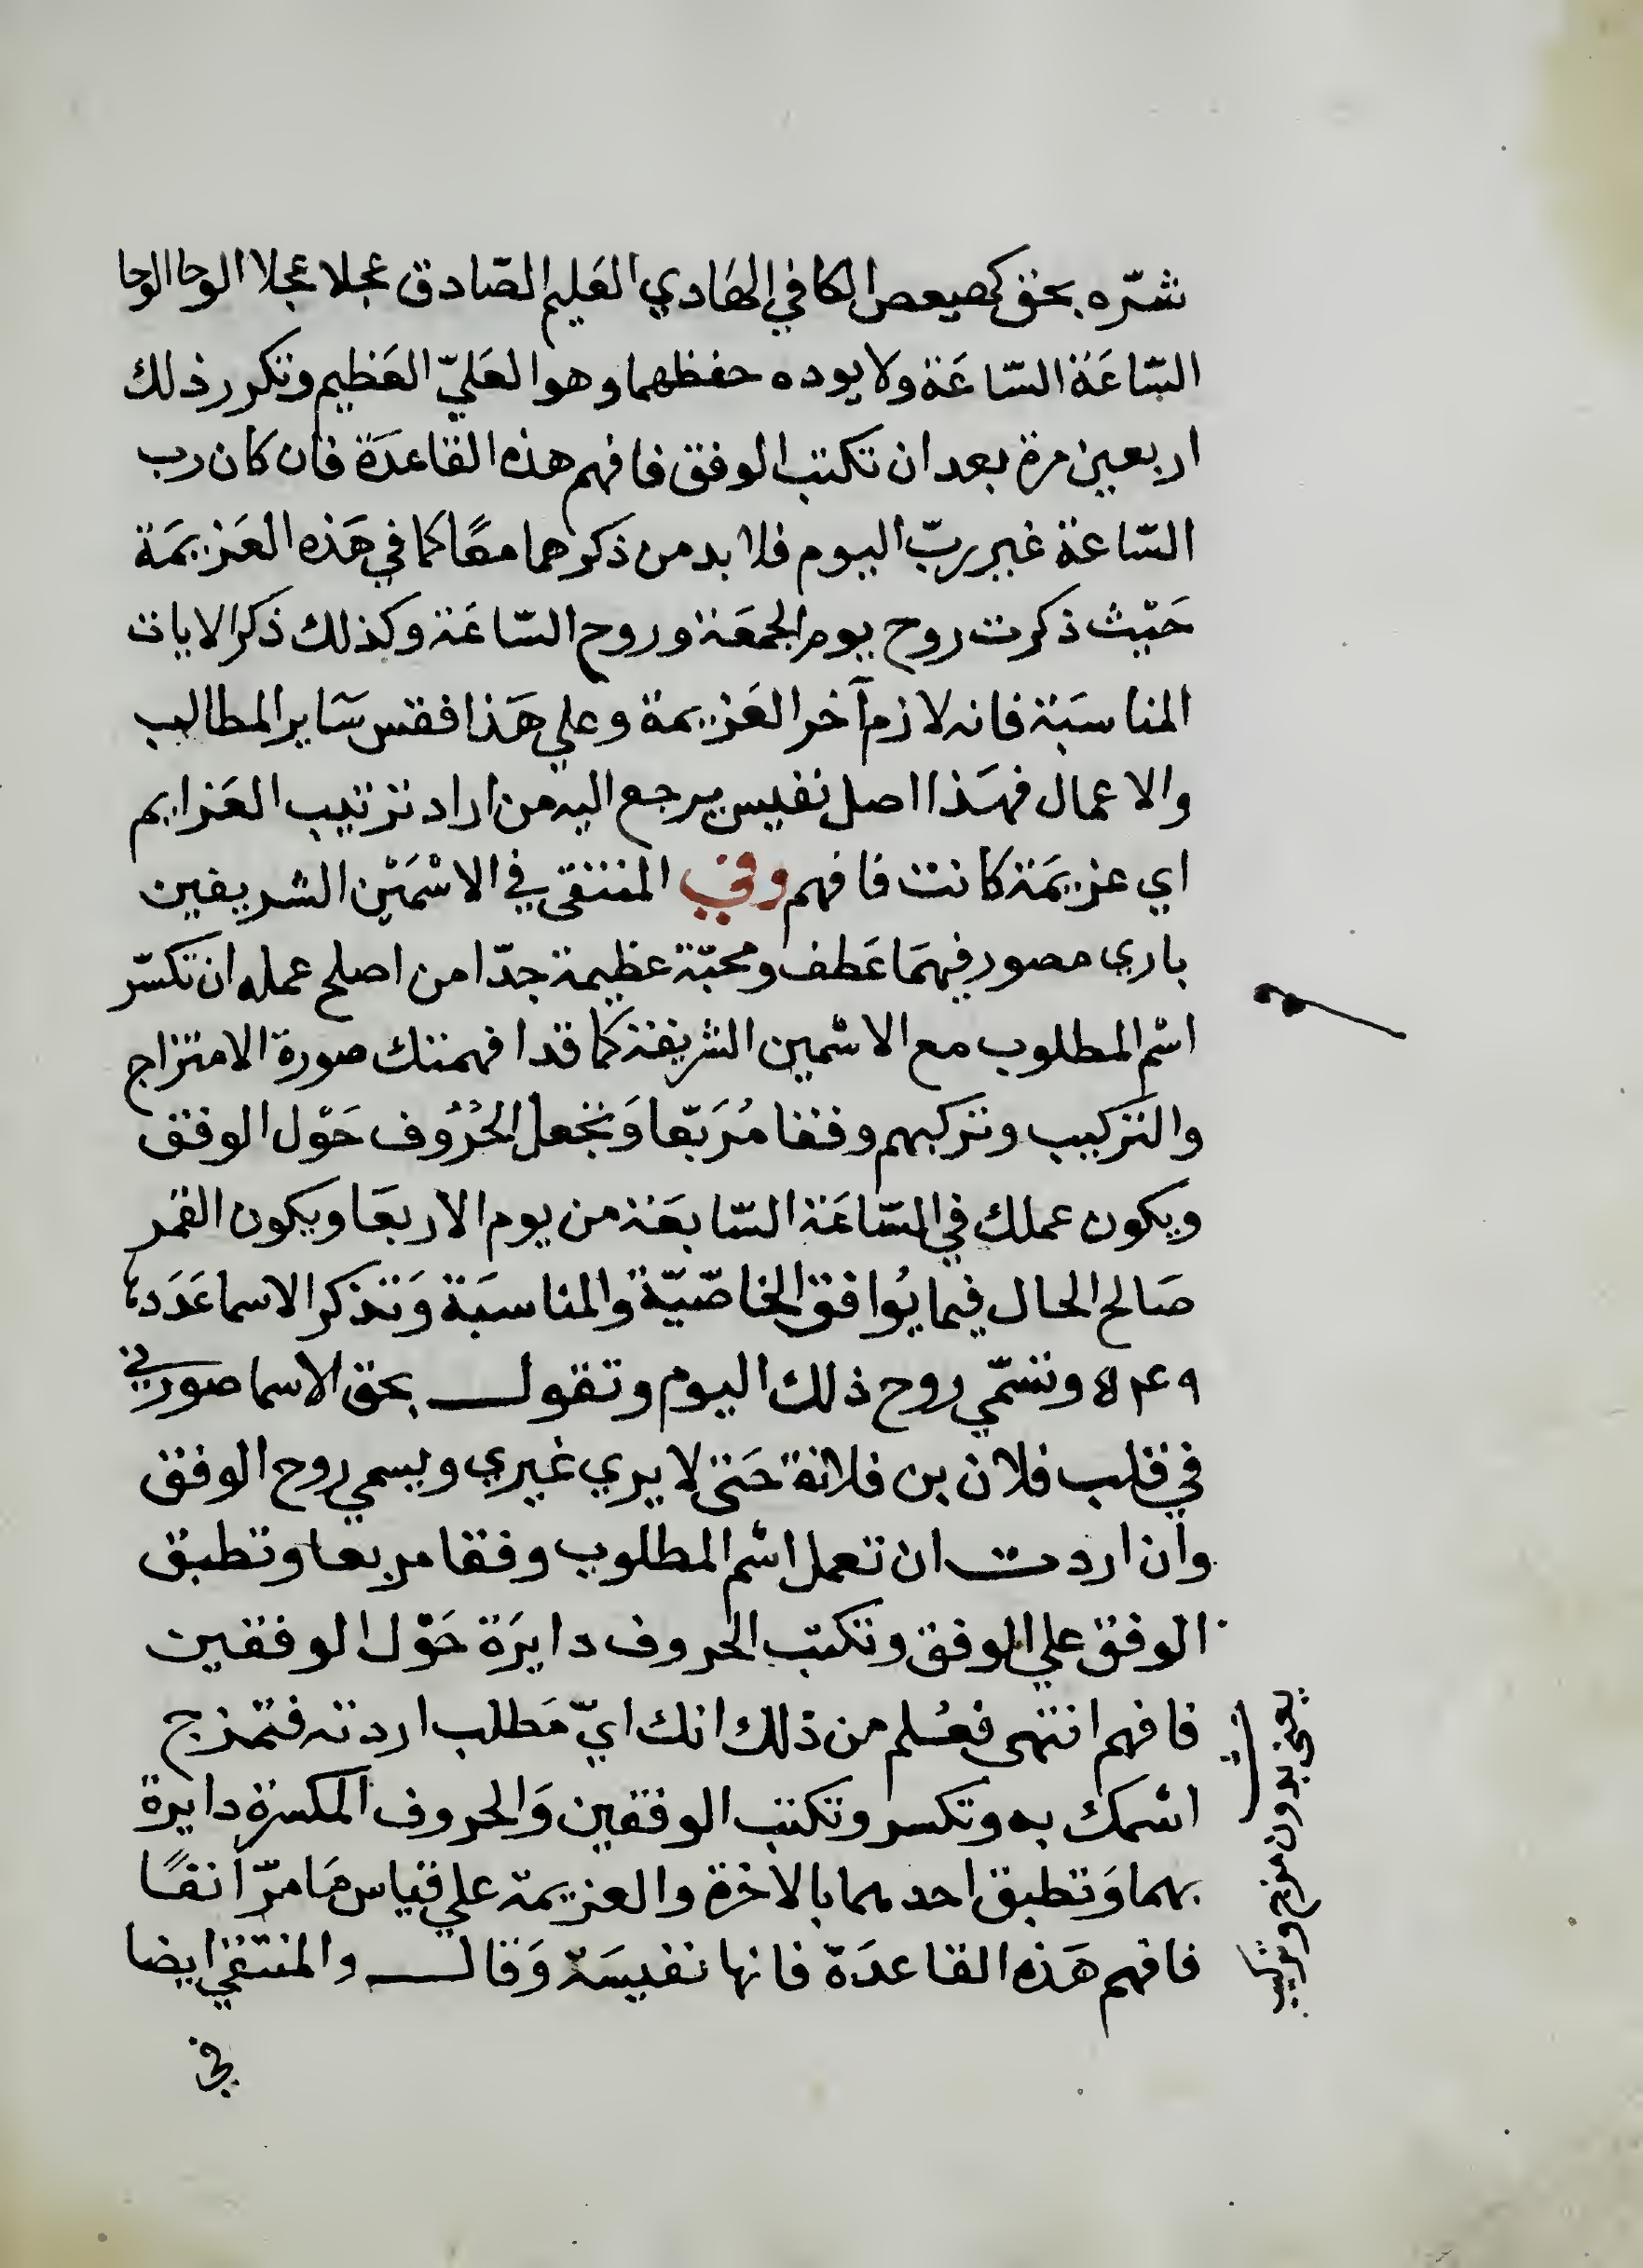 شرّه بحق كهيعص الكافي الهَادي العَليم الصّادق عجلا عجلا الوحا الوحا
السّاعَة السّاعَة ولا يوده حفظهما وهو العَليّ العَظيم وتكرر ذلك
اربعين مرة بعد ان تكتب الوفق فافهم هذه القاعدَة فان كان رب
السّاعة غير ربّ اليوم فلا بد من ذكرهما معًا كما في هَذه العَزيمَة
حَيْث ذكرت روح يوم الجمعَة وروح السّاعَة وكذلك ذكر الايات
المناسبَة فانه لازم آخر العَزيمة وعلي هَذا فقس سَاير المطالب
والاعمال فهَذا اصل نفيس يرجع اليه من اراد ترتيب العَزايم
اي عزيمَة كانت فافهم وفي المنتقى في الاسْمَيْن الشريفين
باري مصور فيهمَا عَطف ومحبّة عظيمة جدّا من اصلح عمله ان تكسّر
اسْم المطلوب مع الاسْمين الشريفة كما قد افهمتك صورة الامتزاج
والتركيب وتركبهم وفقا مُرَبّعا وَتجعل الحُرُوف حَوْل الوفق
ويكون عملك في السّاعَة السّابعَة من يوم الاربعَا ويكون القمر
صَالح الحال فيما يُوافق الخاصّيّة والمناسبَة وَتذكر الاسما عَدَد
٥٤٩ وتسَمّي روح ذلك اليوم وتقول بحق الاسما صورني
في قلب فلان بن فلانة حَتى لا يري غيري ويسمي روح الوفق
وان اردت ان تعمل اسْم المطلوب وفقا مربعا وتطبق
الوفق علي الوفق وتكتب الحروف دايرَة حَوْل الوفقين
فافهم انتهى فعُلم من ذلك انك ايّ مَطلب اردته فتمزج
اسْمك به وتكسر وتكتب الوفقين وَالحروف المكسرة دايرة
بهما وَتطبق احدهما بالاخرة والعزيمة علي قياس مَا مرّ آنفًا
فافهم هَذه القاعدَة فانها نفيسَة وَقال والمنتقي ايضا
في
يعني بدون مزج وتركيب